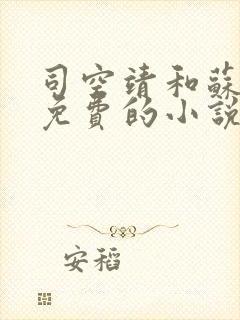 司空靖和蘇
免費的小說
安稻